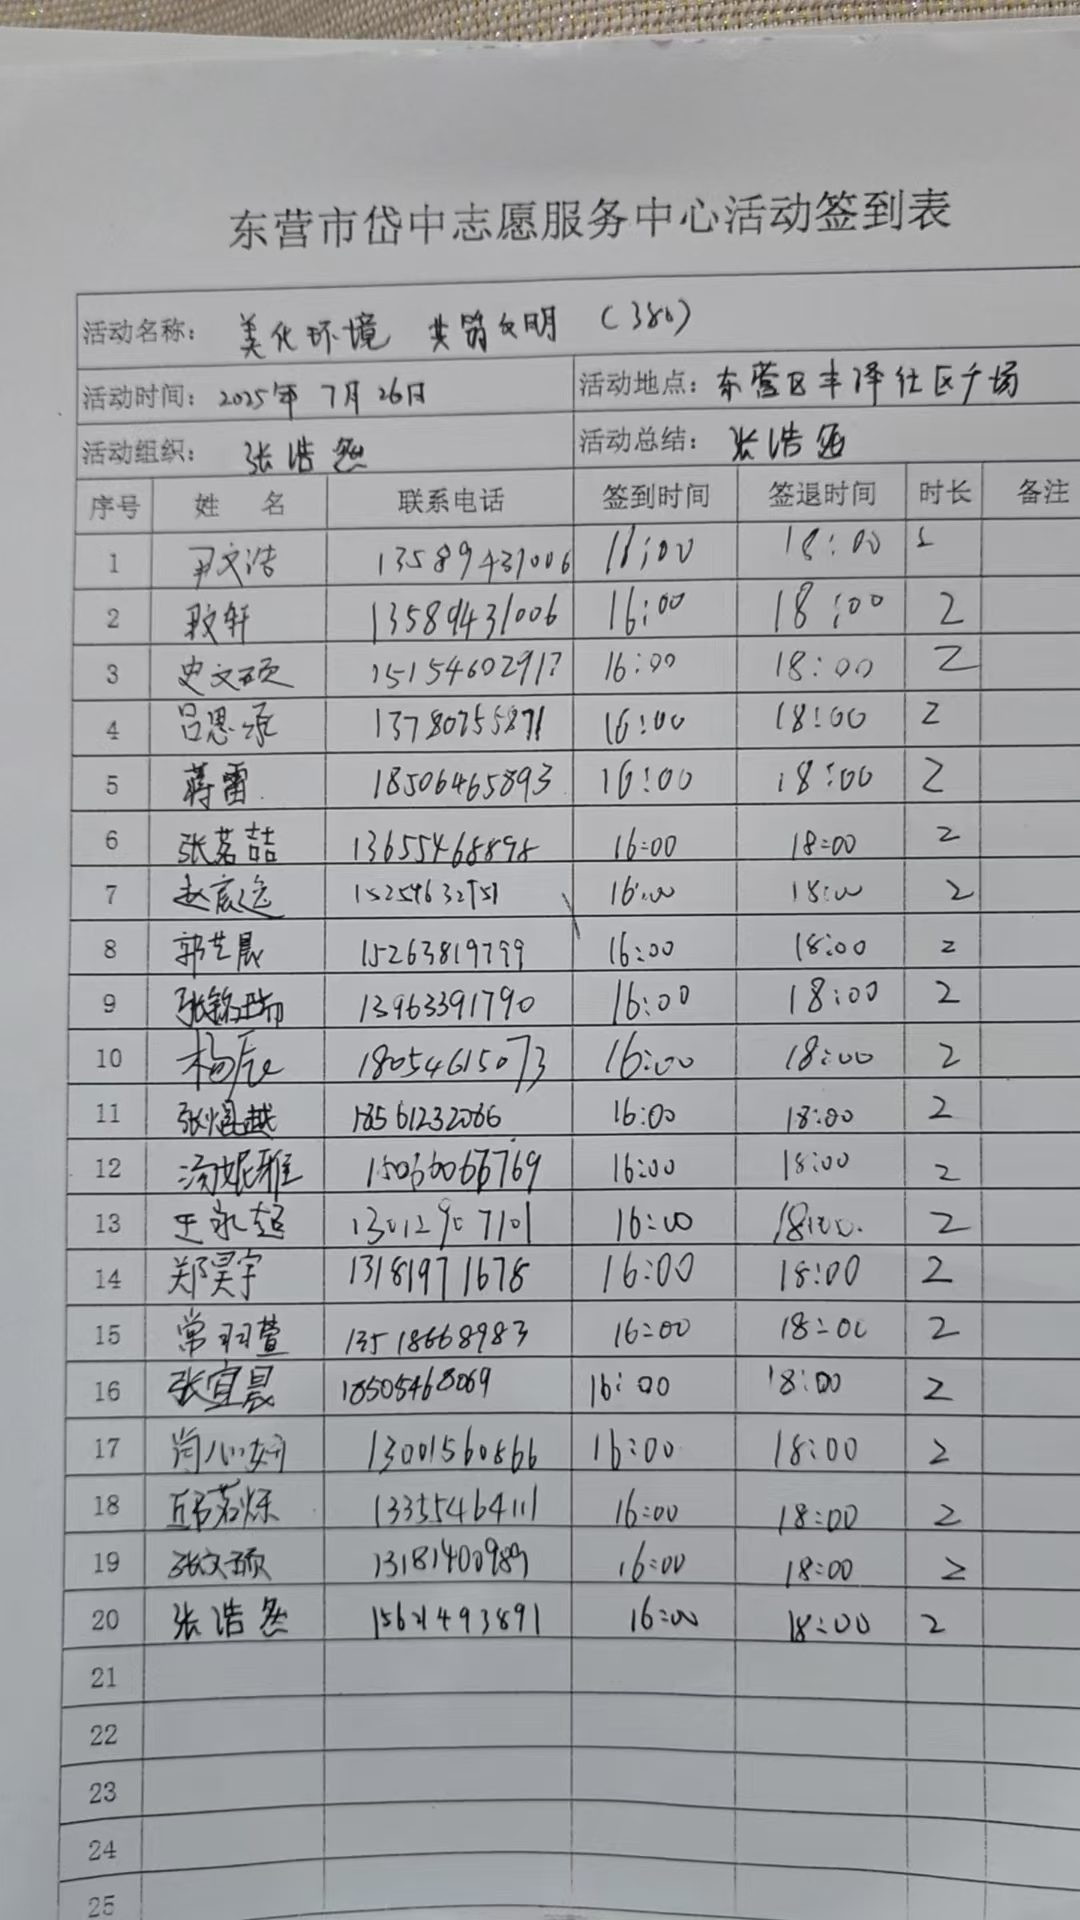 东营市岱中志愿服务中心活动签到表
活动名称: 美化环境 共筑文明 (386)
活动时间: 2025年7月26日 活动地点: 东营区丰泽社区广场
活动组织: 张浩然 活动总结: 张浩然
序号 姓 名 联系电话 签到时间 签退时间 时长 备注
1 尹文浩 13589431006 16:00 18:00
2 耿轩 13589431006 16:00 18:00 2
3 史文硕 15154602917 16:00 18:00 2
4 吕思承 13780755871 16:00 18:00 2
5 蒋雷 18506465893 16:00 18:00 2
6 张茗喆 13655468898 16:00 18:00 2
7 赵宸逸 16:00 18:00 2
8 郭芝晨 15263819799 16:00 18:00 2
9 张铭瑞 13963391790 16:00 18:00 2
10 杨辰 18054615073 16:00 18:00 2
11 张焜越 18561232066 16:00 18:00 2
12 汤妮雅 16:00 18:00 2
13 王永超 13012907101 16:00 18:00 2
14 郑昊宇 13181971678 16:00 18:00 2
15 常羽萱 13518668983 16:00 18:00 2
16 张宜晨 18505468069 16:00 18:00 2
17 尚心妍 13001560866 16:00 18:00 2
18 邱茗烁 13355464111 16:00 18:00 2
19 张文硕 16:00 18:00 2
20 张浩然 15621493891 16:00 18:00 2
21
22
23
24
25